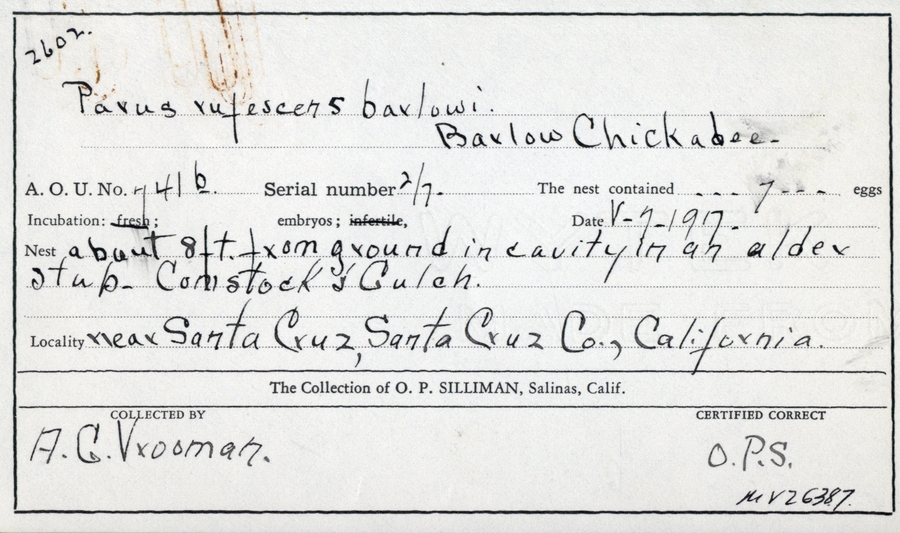 2602.
Parus rufescens barlowi.
Barlow Chickadee.
A. O. U. No. 741 b. Serial number 2/7. The nest contained ---7--- eggs
Incubation: fresh; embryos; infertile, Date V-7-1917.
Nest about 8 ft. from ground in cavity in an alder
stub- Comstock's Gulch.
Locality near Santa Cruz, Santa Cruz Co., California.
The Collection of O. P. SILLIMAN, Salinas, Calif.
COLLECTED BY CERTIFIED CORRECT
A. G. Vrooman. O.P.S.
MVZ6387